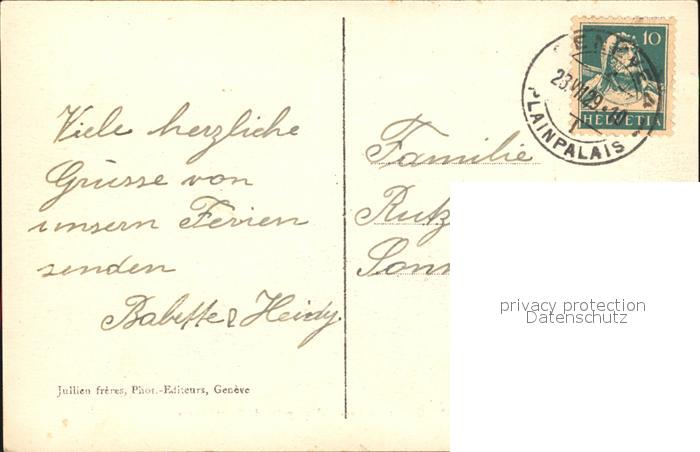 Viele herzliche
Grüsse von
unsern Ferien
senden
Babette & Heidy.
Jullien frères, Phot.-Editeurs, Genève
10
HELVETIA
GENÈVE
23.VII.29.-10
PLAINPALAIS
Familie
Rutz
Sonn
privacy protection
Datenschutz